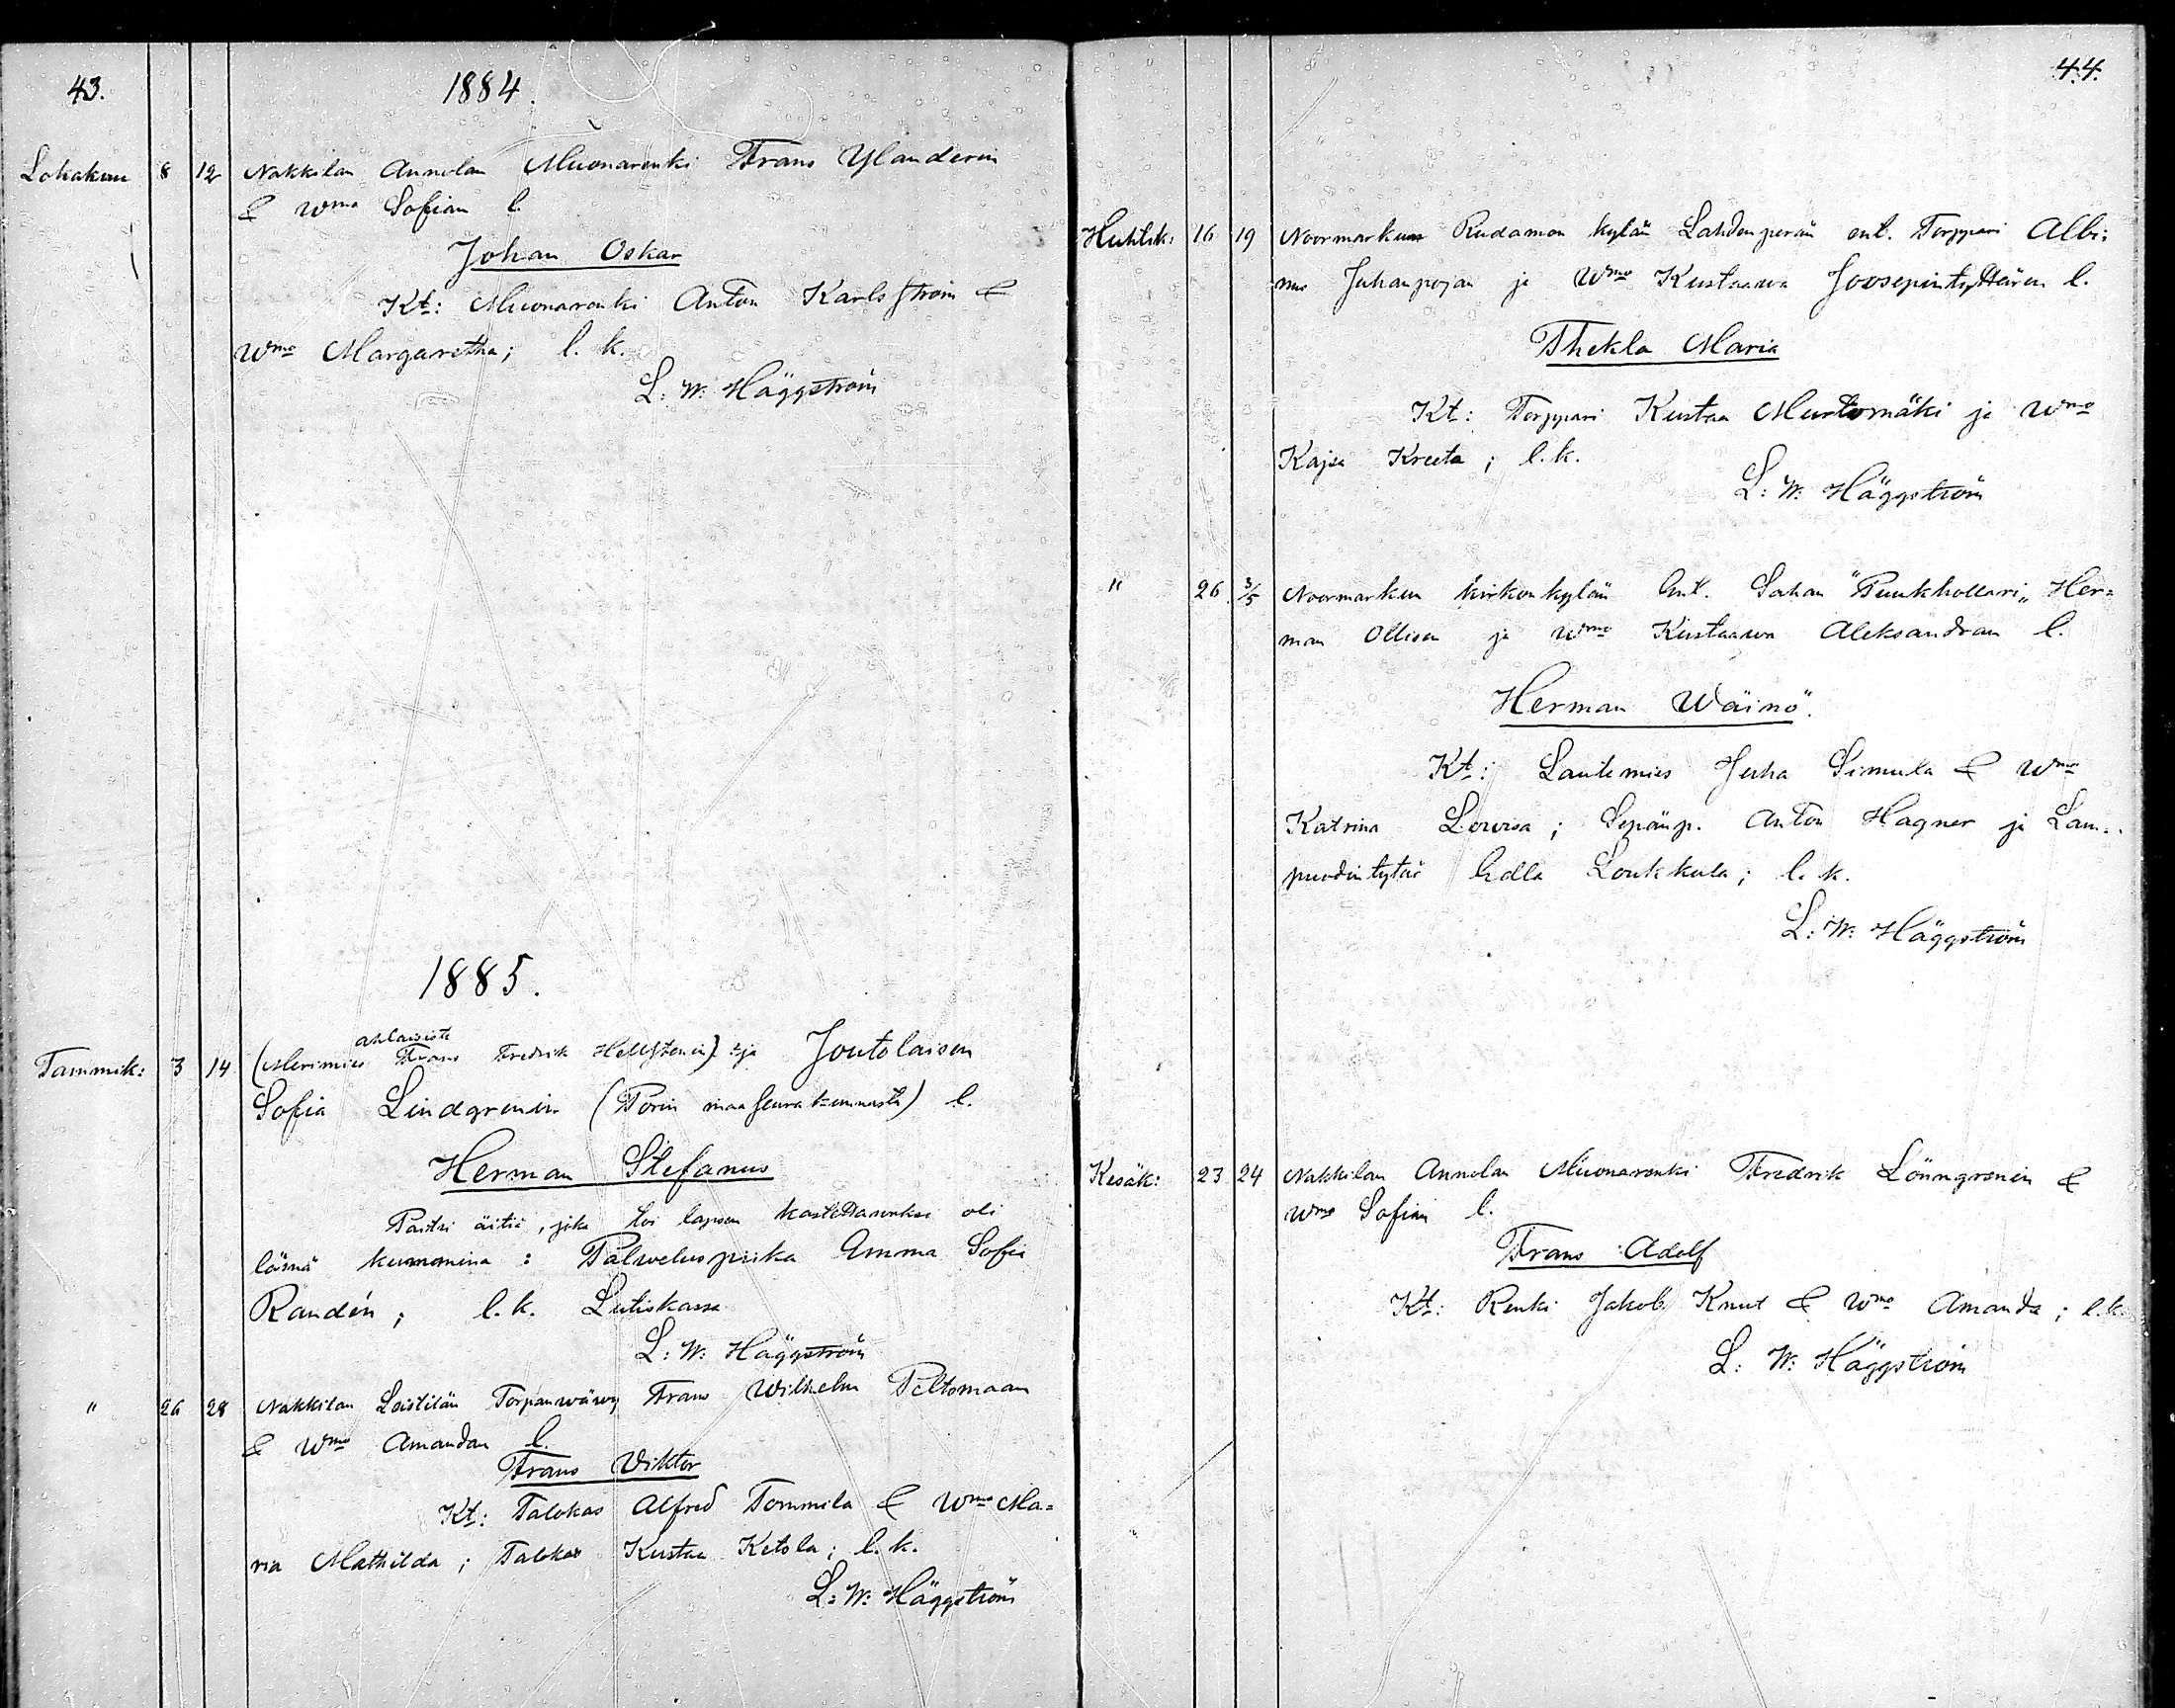 43.
1884.
Lokakuu 8 12 Nakkilan Annolan Muonarenki Frans Ylanderin
& Wmo Sofian l.
Johan Oskar
Kt: Muonarenki Anton Karlsström &
Wmo Margaretha; l. k.
L: W: Häggström
1885.
ahlaisista
Tammik: 3 14 (Merimies Frans Fredrik Hellstenin) ja Joutolaisen
Sofia Lindgrenin (Porin maaseurakunnasta) l.
Herman Stefanus
Paitsi äitiä, joka toi lapsen kastettavaksi oli
läsnä kummina: Palveluspiika Emma Sofia
Randén; l. k. Lutiskassa
L: W: Häggström
" 26 28 Nakkilan Leistilän Torpanwäwy Frans Wilhelm Peltomaan
& Wmo Amandan l.
Frans Viktor
Kt: Talokas Alfred Tommila & Wmo Ma=
ria Mathilda; Talokas Kustaa Ketola; l. k.
L: W: Häggström
44.
Huhtik: 16 19 Noormarkun kylän Lahdenperän ent. Torppari Albi=
nus Juhanpojan ja Wmo Kustaawa Joosepintyttären l.
Thekla Maria
Kt: Torppari Kustaa Murtomäki ja Wmo
Kajsa Kreeta; l. k.
L: W: Häggström
" 26 3/5 Noormarkun kirkonkylän Ent. Sahan "Puukhollari" Her=
man Ollisen ja Wmo Kustaawa Aleksandran l.
Herman Wäinö.
Kt: Lautemies Juha Simula & Wmo
Katrina Lowisa; Sepänp. Anton Hagner ja Lam=
puodintytär Edla Loukkula; l. k.
L: W: Häggström
Kesäk: 23 24 Nakkilan Annolan Muonarenki Fredrik Lönngrenin &
Wmo Sofian l.
Frans Adolf
Kt: Renki Jakob Knut & Wmo Amanda; l. k.
L: W: Häggström